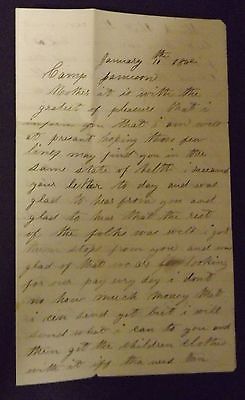 January th 1862
Camp Jameson
Mother it is with the
gratest of pleasure that i
inform you that i am well
at presant hoping those few
lines may find you in the
same state of helth i received
your letter to day and was
glad to hear from you and
glad to hear that the rest
of the folks was well i got
them stops from you and was
glad of that we are looking
for our pay evry day i dont
no how much money that
i can send yet but i will
send what i can to you and
then get the children clothes
with it iff tha need them